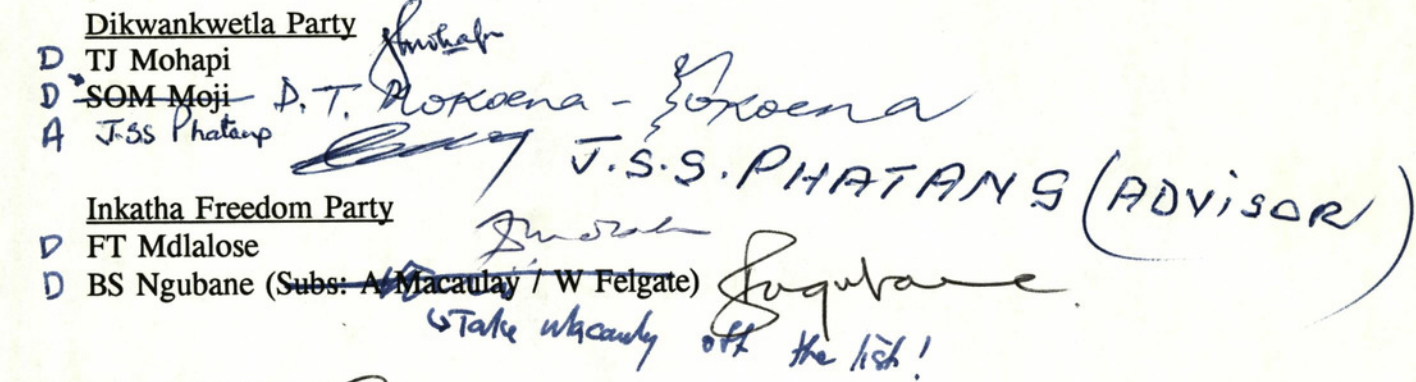 Dikwankwetla Party
D TJ Mohapi
D SOM Moji D.T. Mokoena - Mokoena
A J.SS Phatang
J.S.S. PHATANG (ADVISOR)
Inkatha Freedom Party
D FT Mdlalose
D BS Ngubane (Subs: A Macaulay / W Felgate) Ngubane
Take Macauly off the list!